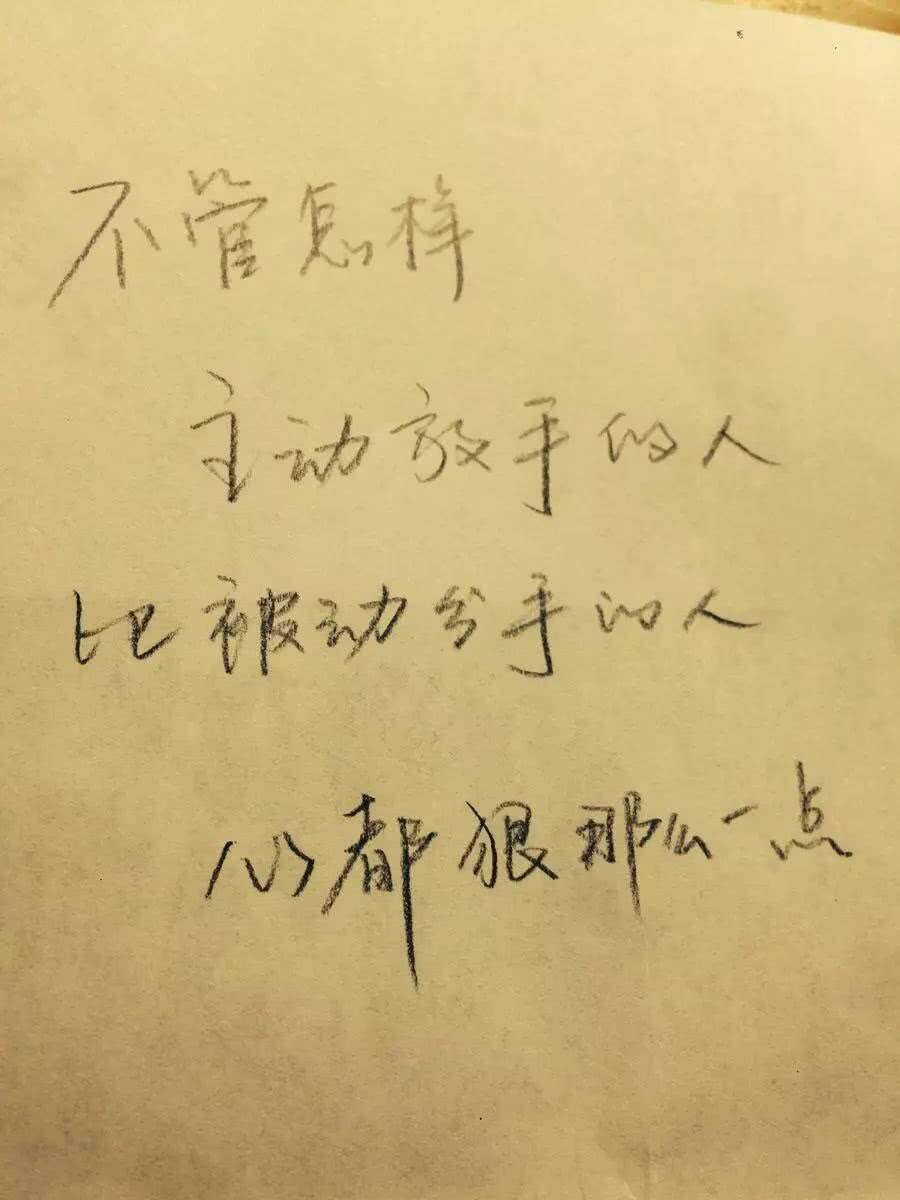 不管怎样
主动放手的人
比被动分手的人
心都狠那么一点